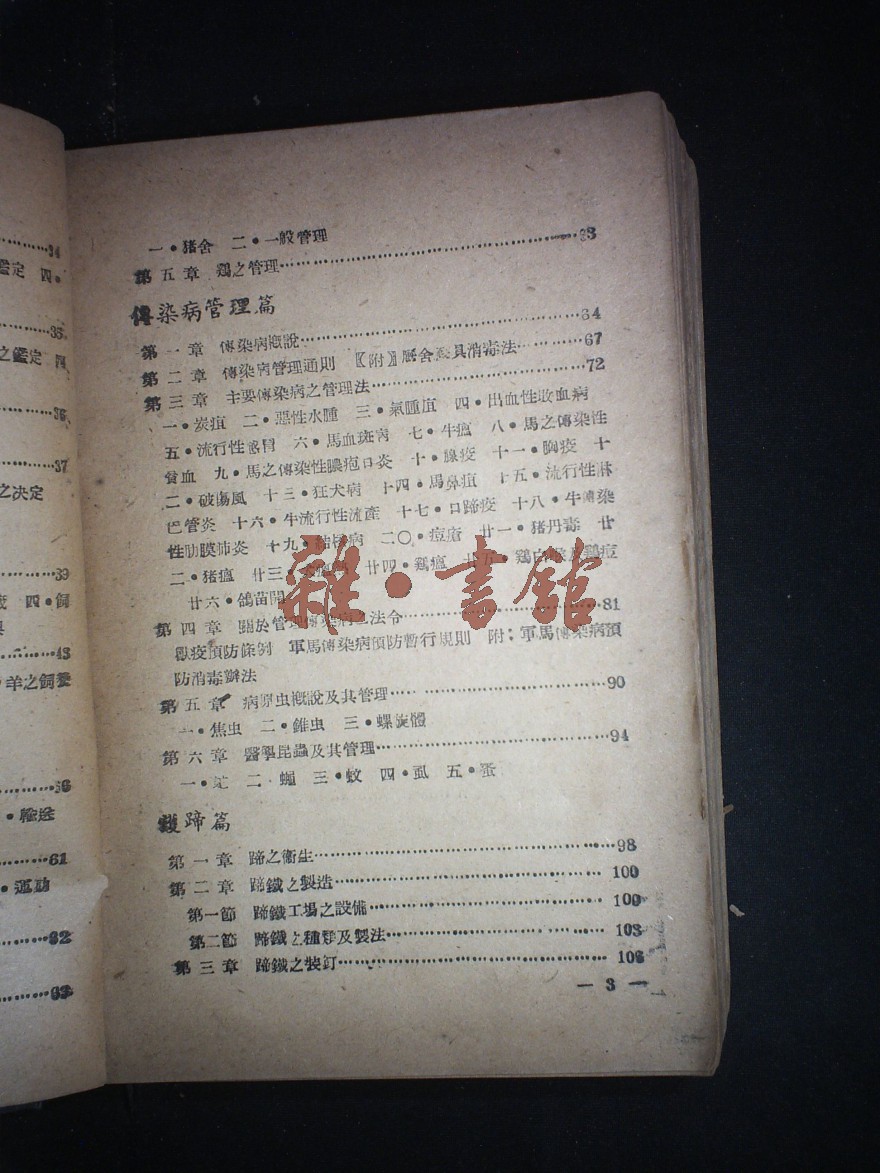 …34
鑑定 四•
…35
之鑑定 四
…36
…37
之决定
…39
四•飼
…43
•羊之飼養
…56
•輸送
…61
•運動
…62
…63
一•猪舍 二•一般管理
第五章 鷄之管理…………63
傳染病管理篇
第一章 傳染病概說…………64
第二章 傳染病管理通則 〖附〗厩舍 具消毒法…………67
第三章 主要傳染病之管理法…………72
一•炭疽 二•惡性水腫 三•氣腫疽 四•出血性敗血病
五•流行性感冒 六•馬血斑病 七•牛瘟 八•馬之傳染性
貧血 九•馬之傳染性膿疱口炎 十•腺疫 十一•胸疫 十
二•破傷風 十三•狂犬病 十四•馬鼻疽 十五•流行性淋
巴管炎 十六•牛流行性流產 十七•口蹄疫 十八•牛傳染
性肋膜肺炎 十九•結核病 二〇•痘瘡 廿一•猪丹毒 廿
二•猪瘟 廿三• 廿四•鷄瘟 廿五•鷄白 及鷄痘
廿六•鴿
第四章 關於管理傳染病之法令…………81
獸疫預防條例 軍馬傳染病預防暫行規則 附:軍馬傳染病預
防消毒辦法
第五章 病原虫概說及其管理…………90
一•焦虫 二•錐虫 三•螺旋體
第六章 醫學昆蟲及其管理…………94
一• 二•蠅 三•蚊 四•虱 五•蚤
護蹄篇
第一章 蹄之衛生…………98
第二章 蹄鐵之製造…………100
第一節 蹄鐵工場之設備…………100
第二節 蹄鐵之種類及製法…………103
第三章 蹄鐵之裝釘…………106
— 3 —
雜•書館